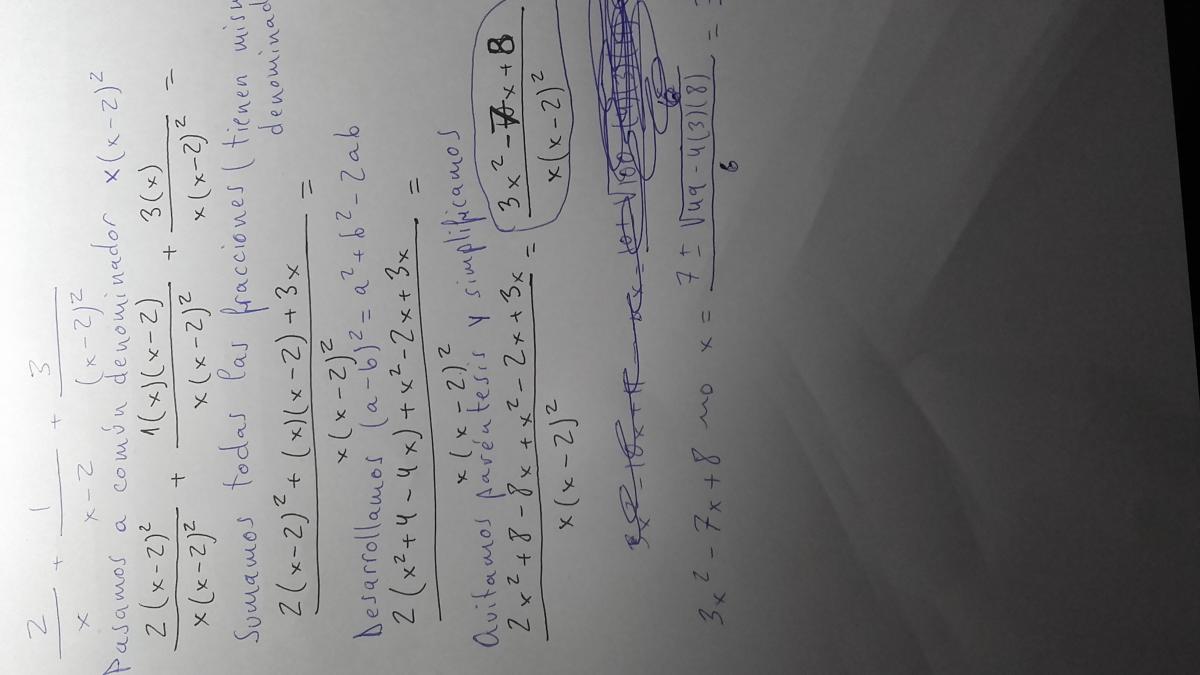 2/x + 1/(x-2) + 3/(x-2)²
Pasamos a común denominador x(x-2)²
2(x-2)²/x(x-2)² + 1(x)(x-2)/x(x-2)² + 3(x)/x(x-2)² =
Sumamos todas las fracciones (tienen
denominad
2(x-2)² + (x)(x-2) + 3x / x(x-2)² =
Desarrollamos (a-b)² = a² + b² - 2ab
2(x² + 4 - 4x) + x² - 2x + 3x / x(x-2)² =
Quitamos paréntesis y simplificamos
2x² + 8 - 8x + x² - 2x + 3x / x(x-2)² = 3x² - 7x + 8 / x(x-2)²
3x² - 7x + 8 no x = 7 ± √49 - 4(3)(8) / 6 =